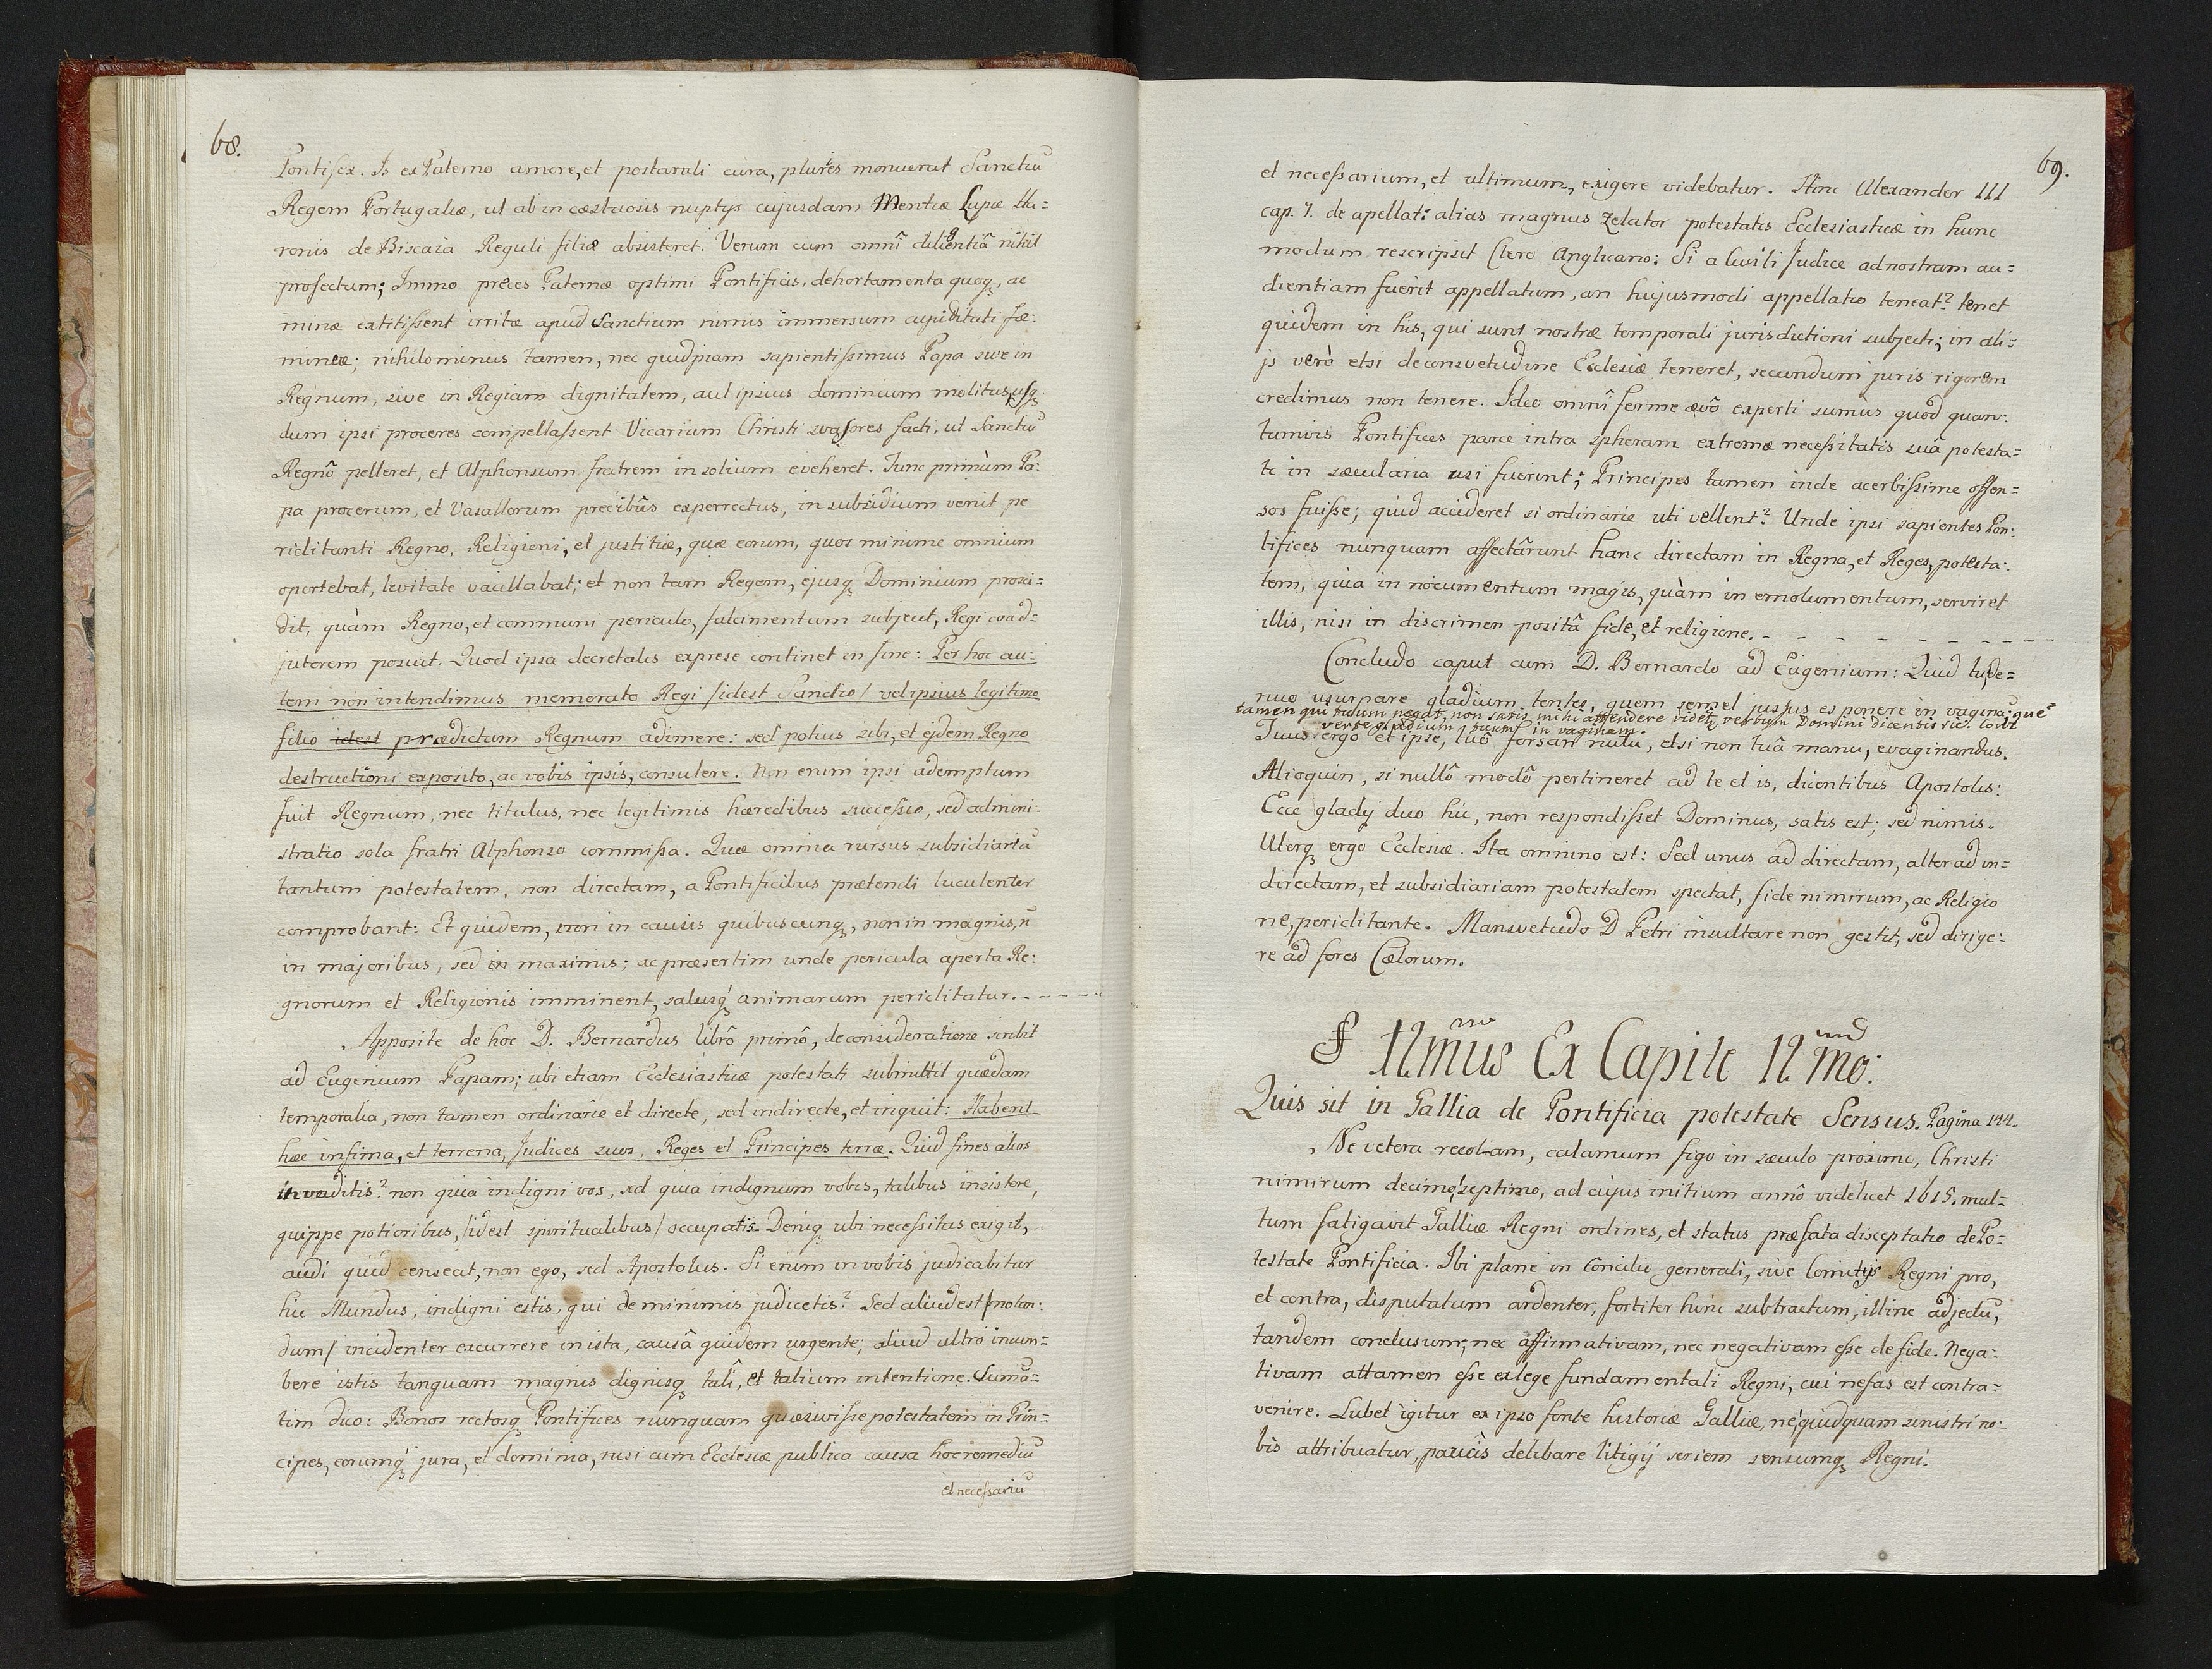 68.
Pontifex. Is ex Paterno amore, et postarali cura, plur̃es monuerat Sanctiũ
Regem Portugaliæ, ut ab incæstuosis nuptijs cujusdam Mentiæ Lupæ Ha=
ronis de Biscaia Reguli filiæ absisteret. Verum cum omnî diligentiâ nihil
profectum; Immo preces Paternæ optimi Pontificis, dehortamenta quoq₃, ac
minæ extitissent irritæ apud Sanctium nimis immersum cupiditati fæ:
mineæ; nihilominus tamen, nec quidpiam sapientissimus Papa sive in
Regnum, sive in Regiam dignitatem, aut ipsius dominium molitus, usq₃
dum ipsi proceres compellassent Vicarium Christi svasores facti, ut Sanctiũ
Regnô pelleret, et Alphonsum fratrem in solium eveheret. Tunc primùm Pa:
pa procerum, et Vasallorum precibûs experrectus, in subsidium venit pe
riclitanti Regno, Religioni, et justitiæ, quæ eorum, quos minime omnium
oportebat, levitate vacillabat; et non tam Regem, ejusq₃ Dominium prosci=
dit, quàm Regno, et communi periculo, fulcimentum subjecit, Regi coad=
jutorem posuit. Quod ipsa decretalis exprese continet in fine: Per hoc au=
tem non intendimus memorato Regi /idest Sanctio/ vel ipsius legitimo
filio idest prædictum Regnum adimere: sed potius sibi, et ejdem Regno
destructioni exposito, ac vobis ipsis, consulere. Non enim ipsi ademptum
fuit Regnum, nec titulus, nec legitimis hæredibus successio, sed admini:
stratio sola fratri Alphonso commissa. Quæ omnia rursus subsidiariã
tantum potestatem, non directam, a Pontificibus prætendi luculenter
comprobant: Et quidem, non in causis quibuscunq₃, non in magnis, ñ
in majoribus, sed in maximis; ac præsertim unde pericula aperta Re:
gnorum et Religionis imminent, salusq₃ animarum periclitatur. - - - -
Apposite de hoc D. Bernardus librô primô, de consideratione scribit
ad Eugenium Papam; ubi etiam Ecclesiasticæ potestati submittit quædam
temporalia, non tamen ordinarie et directe, sed indirecte, et inquit: Habent
hæc infima, et terrena, Judices suos, Reges et Principes terræ. Quid fines alios
invaditis? non quia indigni vos, sed quia indignum vobis, talibus insistere,
quippe potioribus, /idest spiritualibus/ occupatis. Deniq₃ ubi necessitas exigit,
audi quid censeat, non ego, sed Apostolus. Si enim in vobis judicabitur
hic Mundus, indigni estis, qui de minimis judicetis? Sed aliud est /notan:
dum/ incidenter excurrere in ista, causâ quidem urgente; aliud ultro incum=
bere istis tanquam magnis dignisq₃ talî, et talium intentione. Suma=
tim dico: Bonos rectosq₃ Pontifices nunquam quæsivisse potestatem in Prin=
cipes, eorumq₃ jura, et domima, nisi cum Ecclesiæ publica causa hoc remediũ
et necessariũ
69.
et necessarium, et ultimum, exigere videbatur. Hinc Alexander III
cap. 7. de apellat: alias magnus zelator potestatis Ecclesiasticæ in hunc
modum rescripsit Clero Anglicano: Si a Civili Judice ad nostram au=
dientiam fuerit appellatum, an hujusmodi appellatio teneat? tenet
quidem in his, qui sunt nostræ temporali jurisdictioni subjecti; in ali=
js verò etsi de consvetudine Ecclesiæ teneret, secundum juris rigorem
credimus non tenere. Ideo omnî ferme ævô experti sumus quod quan:
tumvis Pontifices parce intra spheram extremæ necessitatis suâ potesta=
te in sæcularia usi fuerint; Principes tamen inde acerbissime offen=
sos fuisse; quid accideret si ordinarie uti vellent? Unde ipsi sapientes Pon:
tifices nunquam affectârunt hanc directam in Regna, et Reges, potesta:
tem, quia in nocumentum magis, quàm in emolumentum, serviret
illis, nisi in discrimen positâ fide, et religione. - - - - - - - - - -
Concludo caput cum D. Bernardo ad Eugenium: Quid tu de=
nuo usurpare gladium tentes, quem semel jussus es ponere in vagina; quẽ
tamen qui tuum negat, non satis mihi attendere videt₃ verbum Domini dicentis sic: Con
verte gladium tuum in vaginam.
Tuus ergo et ipse, tuô forsan nutu, etsi non tuâ manu, evaginandus.
Alioquin, si nullô modô pertineret ad te et is, dicentibus Apostolis:
Ecce gladij duo hic, non respondisset Dominus, satis est; sed nimis.
Uterq₃ ergo Ecclesiæ. Ita omnino est: Sed unus ad directam, alter ad in=
directam, et subsidiariam potestatem spectat, fide nimirum, ac Religio
ne, periclitante. Mansvetudo D Petri insultare non gestit, sed dirige:
re ad fores Cælorum.
§ 12mus Ex Capite 12mo:
Quis sit in Gallia de Pontificia potestate Sensus. Pagina 144.
Ne vetera recolam, calamum figo in sæculo proximo, Christi
nimirum decimo septimo, ad cujus initium annô videlicet 1615. mul=
tum fatigavit Galliæ Regni ordines, et status præfata disceptatio de Po=
testate Pontificia. Ibi plane in Concilio generali, sive Comitijs Regni pro,
et contra, disputatum ardenter, fortiter hinc subtractum, illinc adjectũ,
tandem conclusum; nec affirmativam, nec negativam esse de fide. Nega:
tivam attamen esse ex lege fundamentali Regni, cui nefas est contra=
venire. Lubet igitur ex ipso fonte historiæ Galliæ, ne quidquam sinistri no:
bis attribuatur, paucis delibare litigij seriem sensumq₃ Regni.